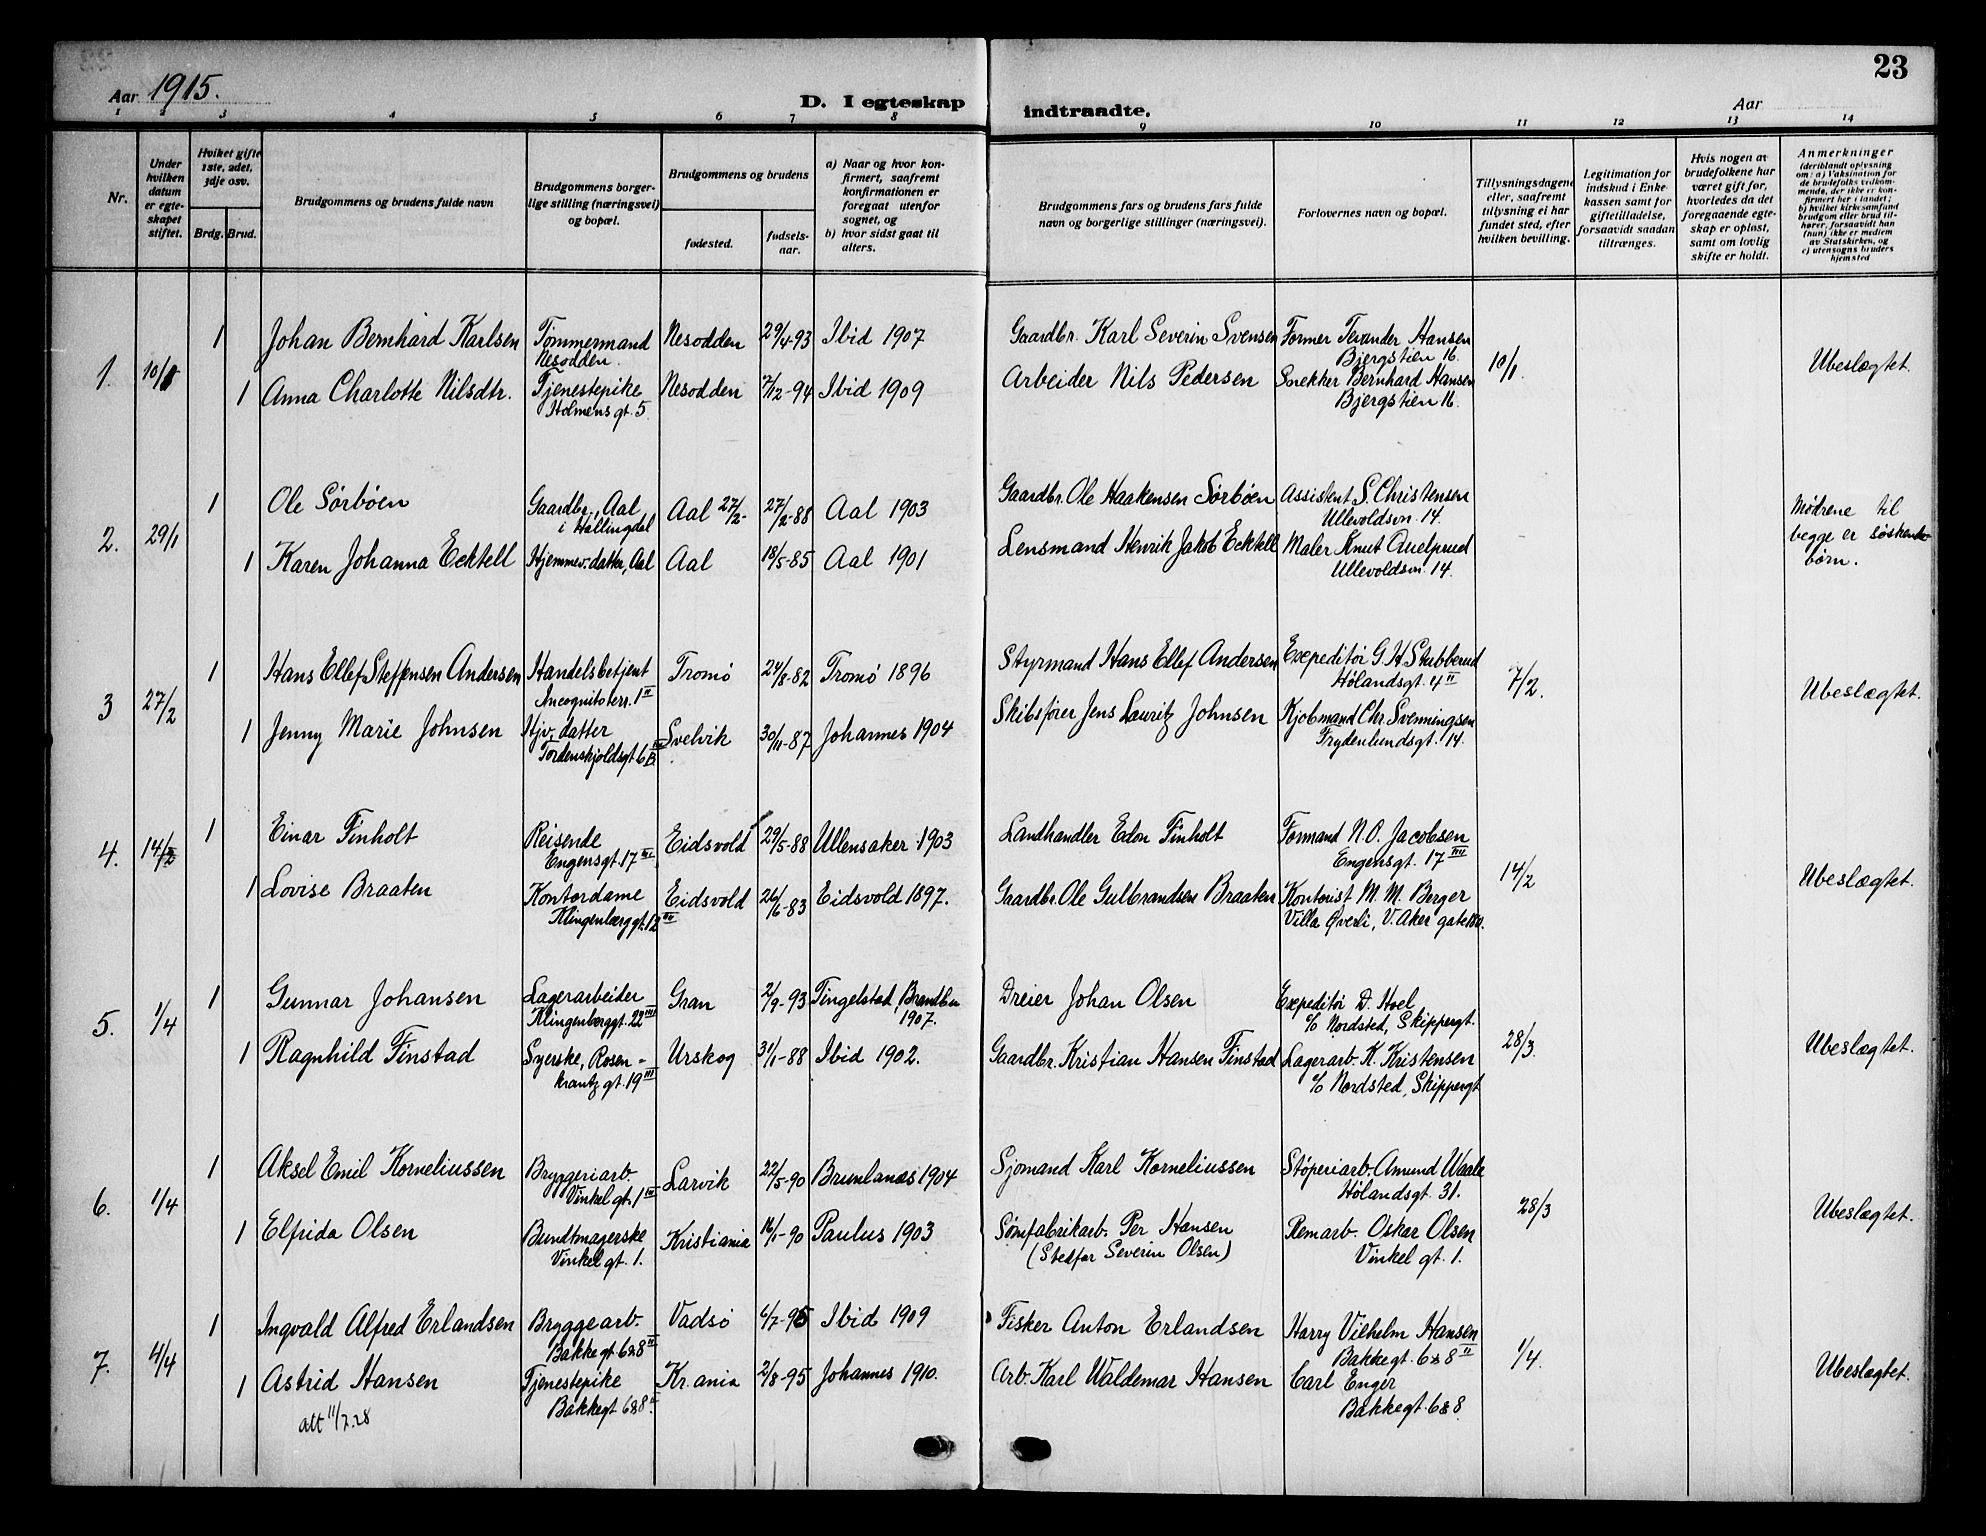 Aar 1915.
D. I egteskap
indtraadte.
Aar
23
1 2 3 4 5 6 7 8
9 10 11 12 13 14
Nr.
Under hvilken datum er egteskapet stiftet.
Hvilket gifte 1ste, 2det, 3dje osv.
Brdg. Brud.
Brudgommens og brudens fulde navn
Brudgommens borgerlige stilling (næringsvei) og bopæl.
Brudgommens og brudens
fødested.
fødselsaar.
a) Naar og hvor konfirmert, saafremt konfirmationen er foregaat utenfor sognet, og
b) hvor sidst gaat til alters.
Brudgommens fars og brudens fars fulde navn og borgerlige stillinger (næringsvei).
Forlovernes navn og bopæl.
Tillysningsdagene eller, saafremt tillysning ei har fundet sted, efter hvilken bevilling.
Legitimation for indskud i Enkekassen samt for giftetilladelse, forsaavidt saadan tiltrænges.
Hvis nogen av brudefolkene har været gift før, hvorledes da det foregaaende egteskap er opløst, samt om lovlig skifte er holdt.
Anmerkninger
(deriblandt oplysning om: a) Vaksination for de brudefolks vedkommende, der ikke er konfirmert her i landet; b) hvilket kirkesamfund brudgom eller brud tilhører, forsaavidt han (hun) ikke er medlem av Statskirken, og c) utensogns bruders hjemsted
1. 10/1
1 Johan Bernhard Karlsen Tømmermand Nesodden 29/4-93 Ibid 1907 Gaardbr. Karl Severin Svensen Former Tevander Hansen
Nesodden. Bjergstien 16.
1 Anna Charlotte Nilsdtr. Tjenestepike Nesodden 7/12-94 Ibid 1909 Arbeider Nils Pedersen Snekker Bernhard Hansen 10/1. Ubeslægtet.
Holmensgt. 5 Bjergstien 16.
2. 29/1
1 Ole Sørbøen Gaardbr., Aal Aal 27/2- 27/2-88 Aal 1903 Gaardbr. Ole Haakensen Sørbøen Assistent S. Christensen
i Hallingdal Ullevoldsvn. 14.
1 Karen Johanna Ecktell Hjemmev. datter, Aal Aal 18/5-85 Aal 1901 Lensmand Henrik Jakob Ecktell Maler Knut
Ullevoldsvn. 14.
Mødrene til
begge er søskende-
børn.
3 27/2
1 Hans Ellef Steffensen Andersen Handelsbetjent Tromø 24/8-82 Tromø 1896 Styrmand Hans Ellef Andersen Expeditør G. H. Stubberud
Incognitoterr. 1 II Hølandsgt. 4 II
1 Jenny Marie Johnsen Hjv. datter Svelvik 30/11-87 Johannes 1904 Skibsfører Jens Lauritz Johnsen Kjøbmand Chr. Svenningsen 7/2. Ubeslægtet.
Tordenskjoldsgt 6 B. Frydenlundsgt. 14.
4. 14/2
1 Einar Finholt Reisende Eidsvold 29/5-88 Ullensaker 1903 Landhandler Edon Finholt Formand N. O. Jacobsen
Engensgt. 17 III Engensgt. 17 III
1 Lovise Braaten Kontordame Eidsvold 26/6-83 Eidsvold 1897. Gaardbr. Ole Gulbrandsen Braaten Kontorist M. M. Berger 14/2 Ubeslægtet.
Klingenberggt. Villa Øverli, V. Aker
5. 1/4
1 Gunnar Johansen Lagerarbeider Gran 2/9-93 Tingelstad, Brandbu Dreier Johan Olsen Expeditør D. Hoel
Klingenberggt. 22 III 1907. c/o Nordsted, Skippergt.
1 Ragnhild Finstad Syerske, Rosen- Urskog 31/1-88 Ibid 1902. Gaardbr. Kristian Hansen Finstad Lagerarb. K. Kristensen 28/3. Ubeslægtet.
krantz gt. 19 III c/o Nordsted, Skippergt
6. 1/4
1 Aksel Emil Korneliussen Bryggeriarb. Larvik 22/5-90 Brunlanæs 1904 Sjømand Karl Korneliussen Støperiarb. Amund Waale
Vinkel gt. 1 III Hølandsgt. 31.
1 Elfrida Olsen Bundtmagerske Kristiania 16/1-90 Paulus 1903 Sømfabrikarb. Per Hansen Remarb. Oskar Olsen 28/3 Ubeslægtet.
Vinkel gt. 1. (Stedfar Severin Olsen) Vinkel gt. 1.
7. 4/4
1 Ingvald Alfred Erlandsen Bryggearb. Vadsø 6/7-95 Ibid 1909 Fisker Anton Erlandsen Harry Vilhelm Hansen
Bakkegt. 6&8 II Bakkegt. 6&8 II
1 Astrid Hansen Tjenestepike Kr.ania 2/8-95 Johannes 1910. Arb. Karl Waldemar Hansen Carl Enger 1/4. Ubeslægtet.
Bakkegt 6&8 II Bakkegt. 6&8
att 11/7.28